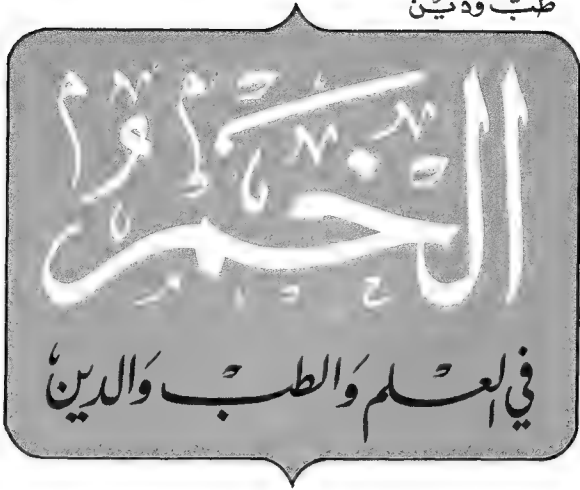 طب ودين
الخمر
في العلم والطب والدين